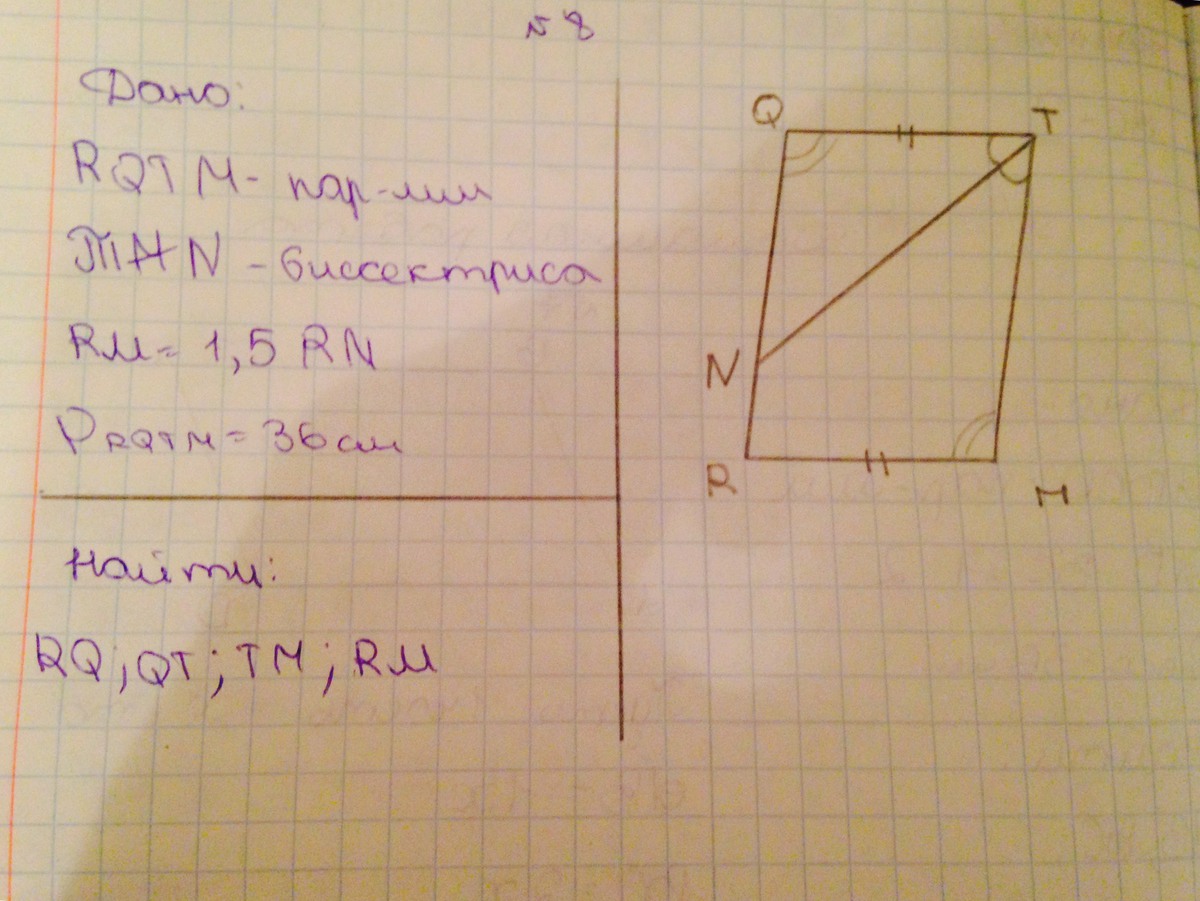 № 8
Дано:
RQTM - пар-лмм
TN - биссектриса
RM = 1,5 RN
P RQTM = 36 см
Найти:
RQ; QT; TM; RM
Q T
N
R M